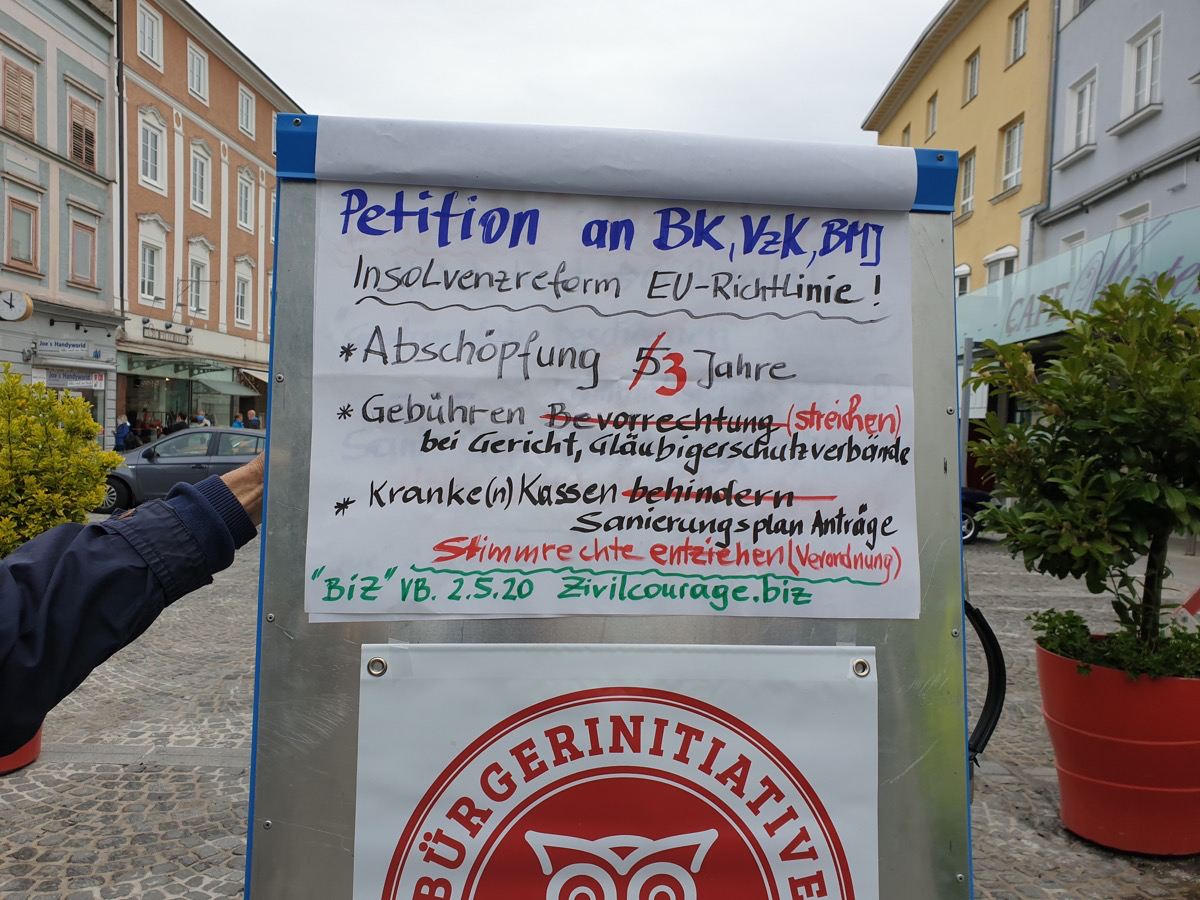 Petition an BK, VzK, BMJ
Insolvenzreform EU-Richtlinie!
* Abschöpfung 5 3 Jahre
* Gebühren Bevorrechtung (streichen)
bei Gericht, Gläubigerschutzverbände
* Kranke(n) Kassen behindern
Sanierungsplan Anträge
Stimmrechte entziehen (Verordnung)
"BiZ" VB. 2.5.20 Zivilcourage.biz
BÜRGERINITIATIVE
Joe's Handyworld
Joe's Handyworld
CAFE Winte